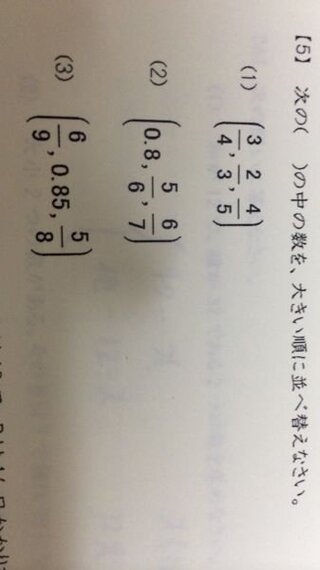 【5】 次の(　)の中の数を、大きい順に並べ替えなさい。
(1) (3/4, 2/3, 4/5)
(2) (0.8, 5/6, 6/7)
(3) (6/9, 0.85, 5/8)